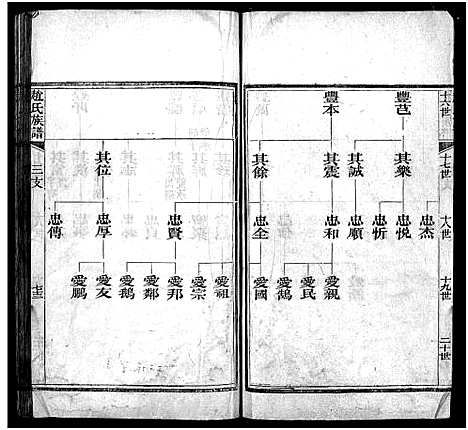 十六世
十七世
十八世
十九世
二十世
豐芑
豐本
其樂
其誠
其震
其餘
忠杰
忠悅
忠忻
忠順
忠和
忠全
愛親
愛民
愛鶴
愛國
趙氏族譜
三支
七三
其位
忠賢
忠厚
忠傳
愛祖
愛宗
愛邦
愛鄰
愛鵝
愛友
愛鵬